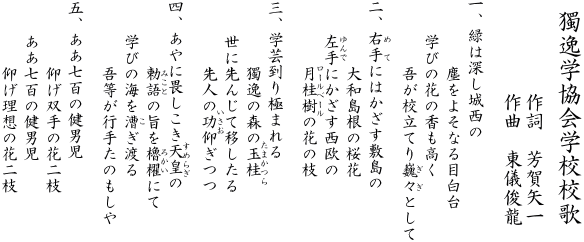 獨逸学協会学校校歌
作詞 芳賀矢一
作曲 東儀俊龍
一、緑は深し城西の
塵をよそなる目白台
学びの花の香も高く
吾が校立てり巍々として
二、右手にはかざす敷島の
大和島根の桜花
左手にかざす西欧の
月桂樹の花の枝
三、学芸到り極まれる
獨逸の森の玉桂
世に先んじて移したる
先人の功仰ぎつつ
四、あやに畏しこき天皇の
勅語の旨を櫓櫂にて
学びの海を漕ぎ渡る
吾等が行手たのもしや
五、ああ七百の健男児
仰げ双手の花二枝
ああ七百の健男児
仰げ理想の花二枝